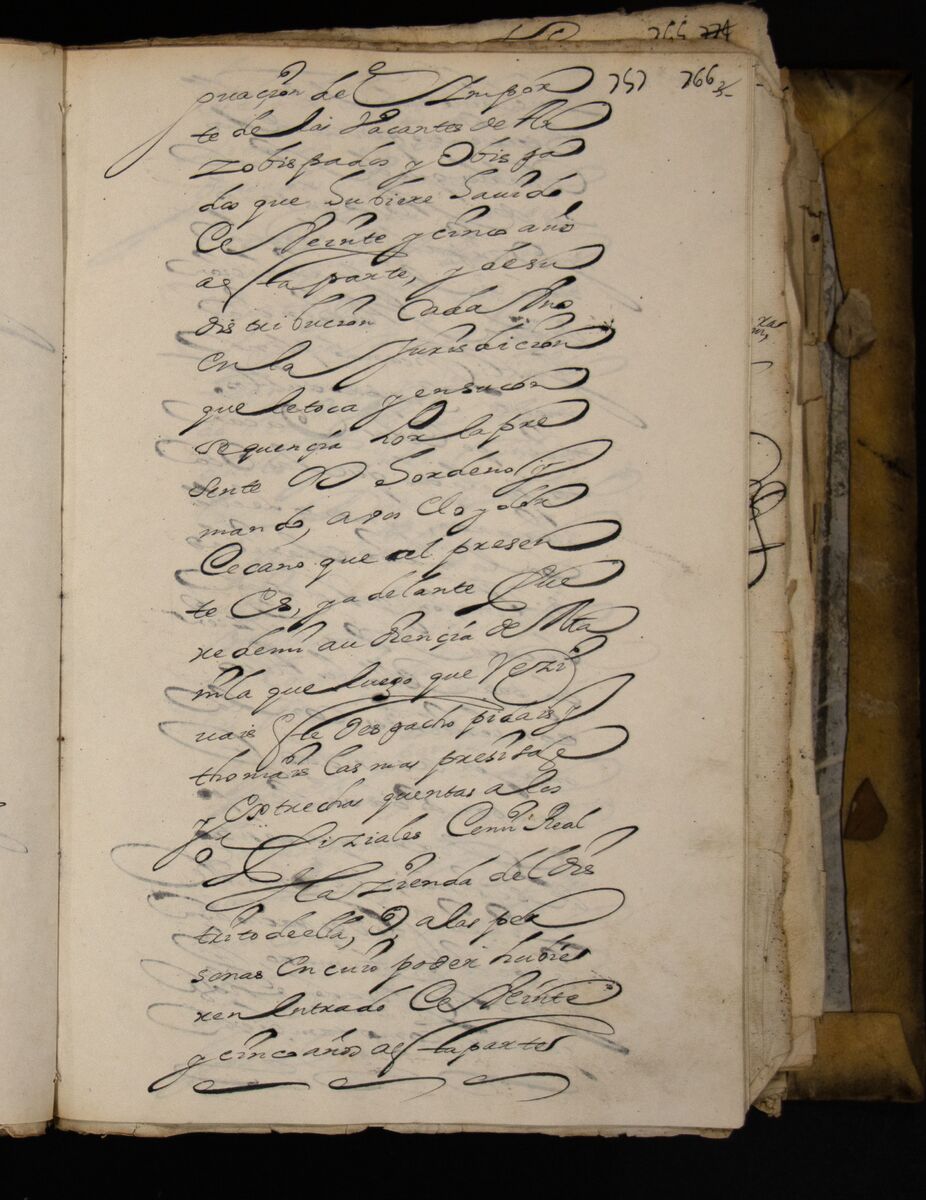 757 766
puaçion del Impor
te de las Vacantes de Ar
zobispados y Obispa
dos que hubiere havido
de Veinte y cinco año
a esta parte, y de su
distribucion Cada Año
en la Jurisdicion
que le toca y en su con
sequençia por la pre
sente os hordeno y
mando, a vos el
que al presen
te es, y adelante fue
re de mi audiençia de Ma
nila que luego que rezi
vais este despacho pidais y
thomeis las mas presisas
y extrechas quentas a los
ofiziales de mi Real
Hazienda del dis
trito de ella, o, a las per
sonas en cuio poder hubie
ren entrado de Veinte
y cinco años a esta parte